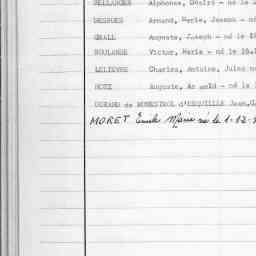 BELLANGER Alphonse, Désiré - né le 2
DESPRES Armand, Marie, Joseph - né
GRALL Auguste, Joseph - né le 2
ROULANDE Victor, Marie - né le 24.
LELIEVRE Charles, Antoine, Jules né
HOTZ Auguste, né le
DURAND de MONESTROL d'ESQUILLE Jean,
MORET Emile Marie né le 1-12-